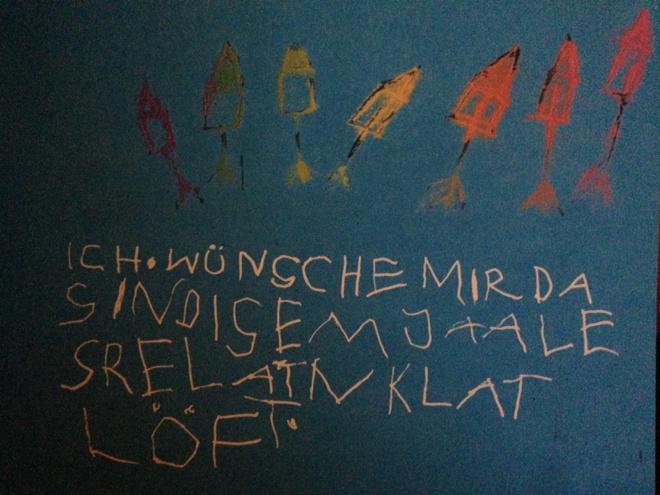 ICH•WÜNSCHE MIR DA
S IN DISEM JAALE
SRELATIV KLAT
LÖFT.